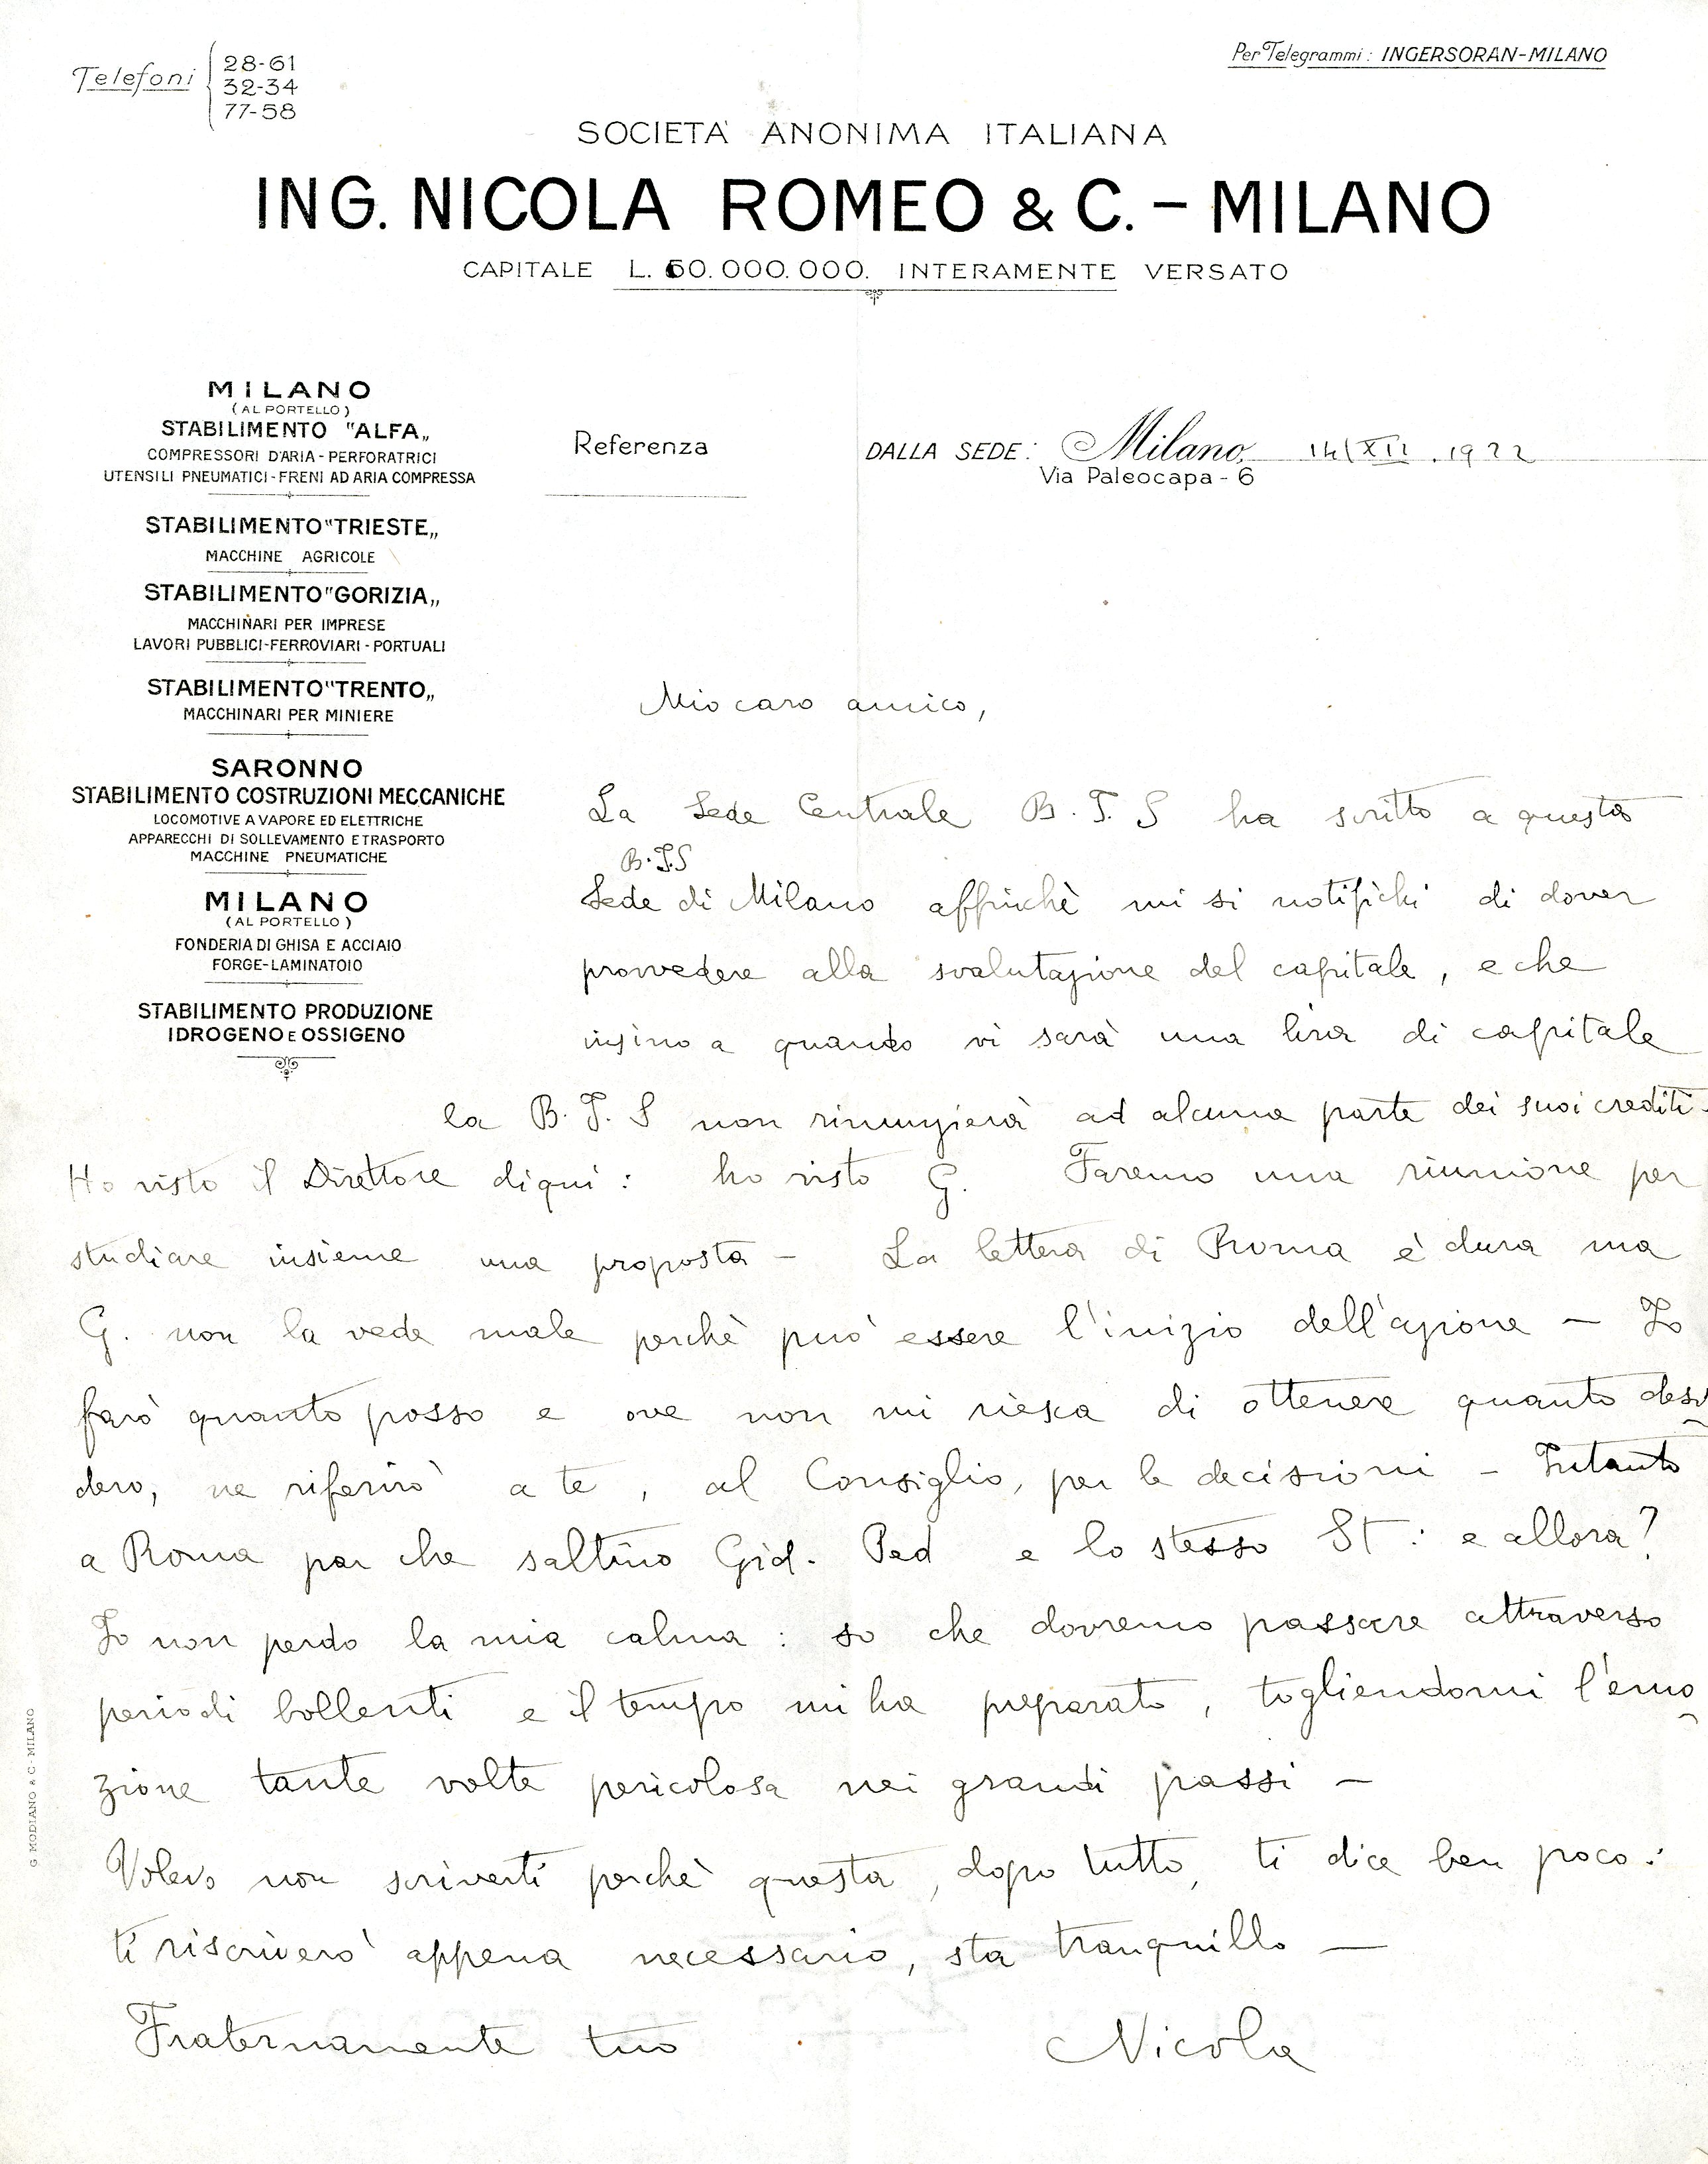 Telefoni
28-61
32-34
77-58
Per Telegrammi: INGERSORAN-MILANO
SOCIETA' ANONIMA ITALIANA
ING. NICOLA ROMEO & C. – MILANO
CAPITALE L. 60.000.000. INTERAMENTE VERSATO
MILANO
(AL PORTELLO)
STABILIMENTO "ALFA„
COMPRESSORI D'ARIA - PERFORATRICI
UTENSILI PNEUMATICI - FRENI AD ARIA COMPRESSA
STABILIMENTO "TRIESTE„
MACCHINE AGRICOLE
STABILIMENTO "GORIZIA„
MACCHINARI PER IMPRESE
LAVORI PUBBLICI-FERROVIARI - PORTUALI
STABILIMENTO "TRENTO„
MACCHINARI PER MINIERE
SARONNO
STABILIMENTO COSTRUZIONI MECCANICHE
LOCOMOTIVE A VAPORE ED ELETTRICHE
APPARECCHI DI SOLLEVAMENTO E TRASPORTO
MACCHINE PNEUMATICHE
MILANO
(AL PORTELLO)
FONDERIA DI GHISA E ACCIAIO
FORGE-LAMINATOIO
STABILIMENTO PRODUZIONE
IDROGENO E OSSIGENO
Referenza
DALLA SEDE: Milano, 14/XII. 1922
Via Paleocapa - 6
Mio caro amico,
La Sede Centrale B. I. S ha scritto a questa
B.I.S
Sede di Milano affinchè mi si notifichi di dover
provvedere alla svalutazione del capitale, e che
insino a quando vi sarà una lira di capitale
la B. I. S non rinunzierà ad alcuna parte dei suoi crediti.
Ho visto il Direttore di qui: ho visto G. Faremo una riunione per
studiare insieme una proposta – La lettera di Roma è dura ma
G. non la vede male perchè può essere l'inizio dell'azione – Io
farò quanto posso e ove non mi riesca di ottenere quanto desi
dero, ne riferirò a te, al Consiglio, per le decisioni – Intanto
a Roma par che saltino Gid. Ped e lo stesso St: e allora?
Io non perdo la mia calma: so che dovremo passare attraverso
periodi bollenti e il tempo mi ha preparato, togliendomi l'emo
zione tante volte pericolosa nei grandi passi –
Volevo non scriverti perchè questa, dopo tutto, ti dice ben poco:
ti riscriverò appena necessario, sta tranquillo –
Fraternamente tuo Nicola
G. MODIANO & C - MILANO